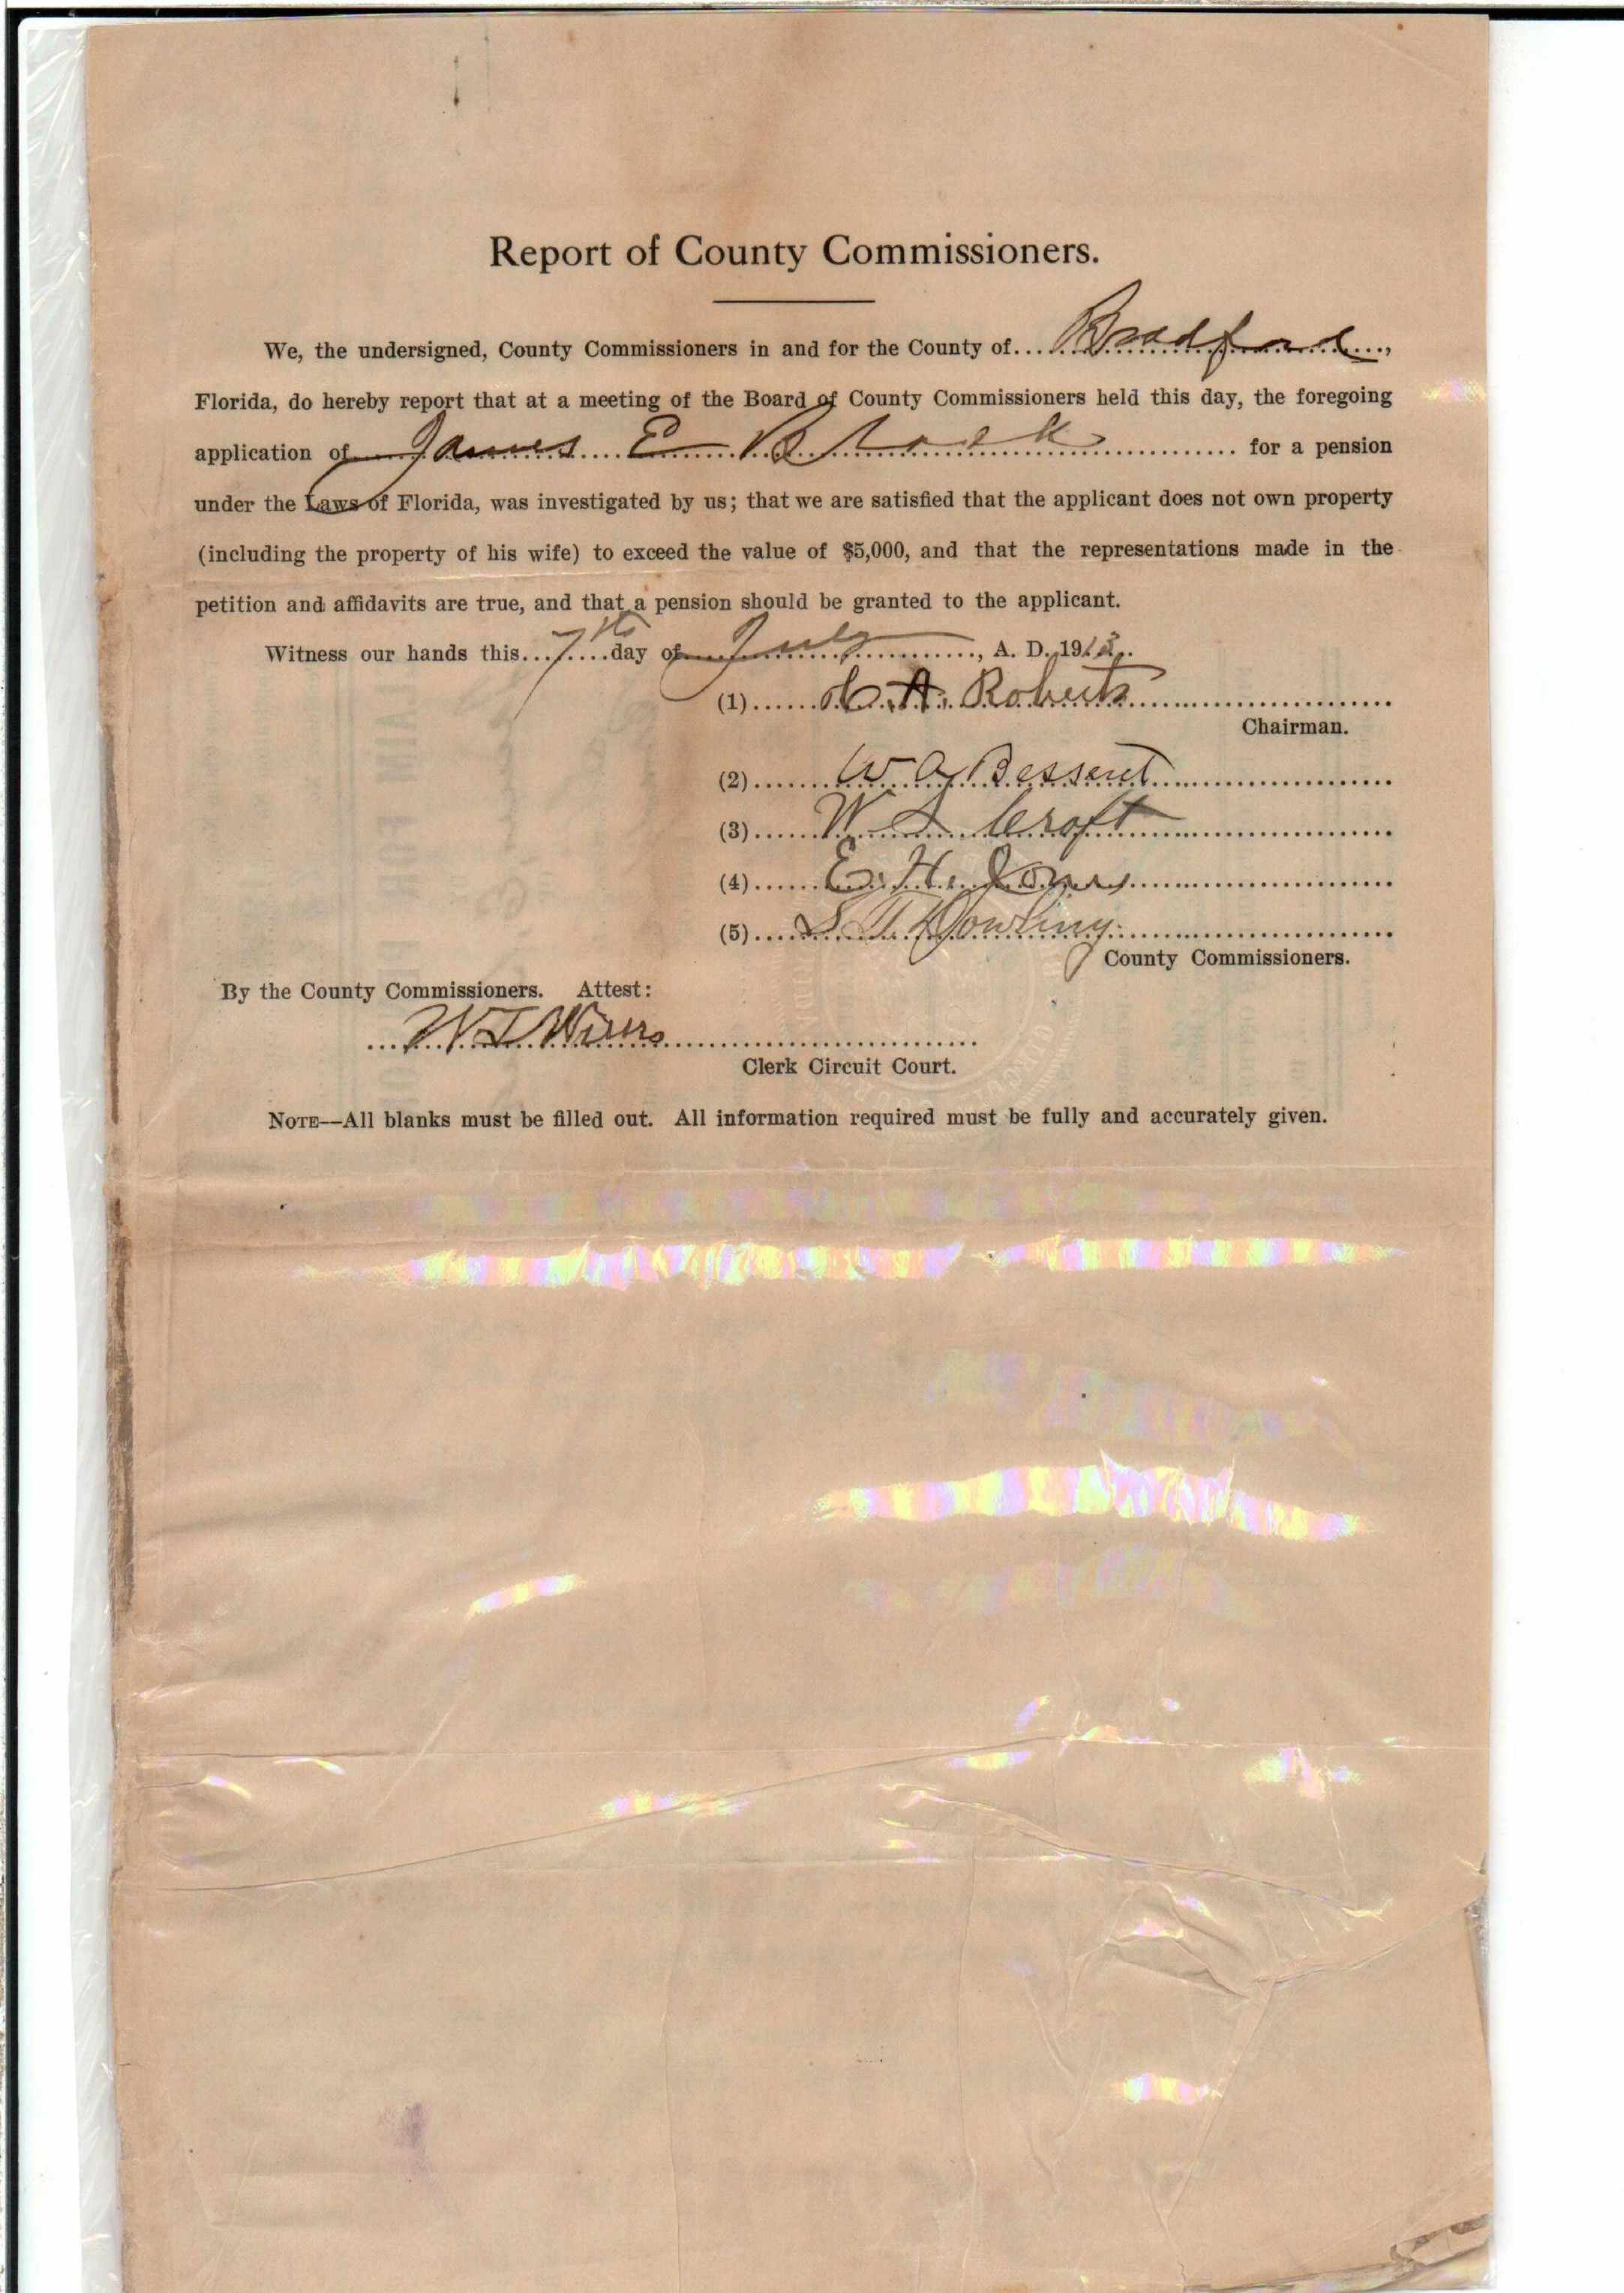 Report of County Commissioners.
We, the undersigned, County Commissioners in and for the County of Bradford,
Florida, do hereby report that at a meeting of the Board of County Commissioners held this day, the foregoing
application of James E for a pension
under the Laws of Florida, was investigated by us; that we are satisfied that the applicant does not own property
(including the property of his wife) to exceed the value of $5,000, and that the representations made in the
petition and affidavits are true, and that a pension should be granted to the applicant.
Witness our hands this 7th day of July, A. D. 191
(1) A. Roberts
Chairman.
(2) W A Bessent
(3) W S Croft
(4) E. H. Jones
(5) S T Dowling
County Commissioners.
By the County Commissioners. Attest:
W T
Clerk Circuit Court.
NOTE--All blanks must be filled out. All information required must be fully and accurately given.